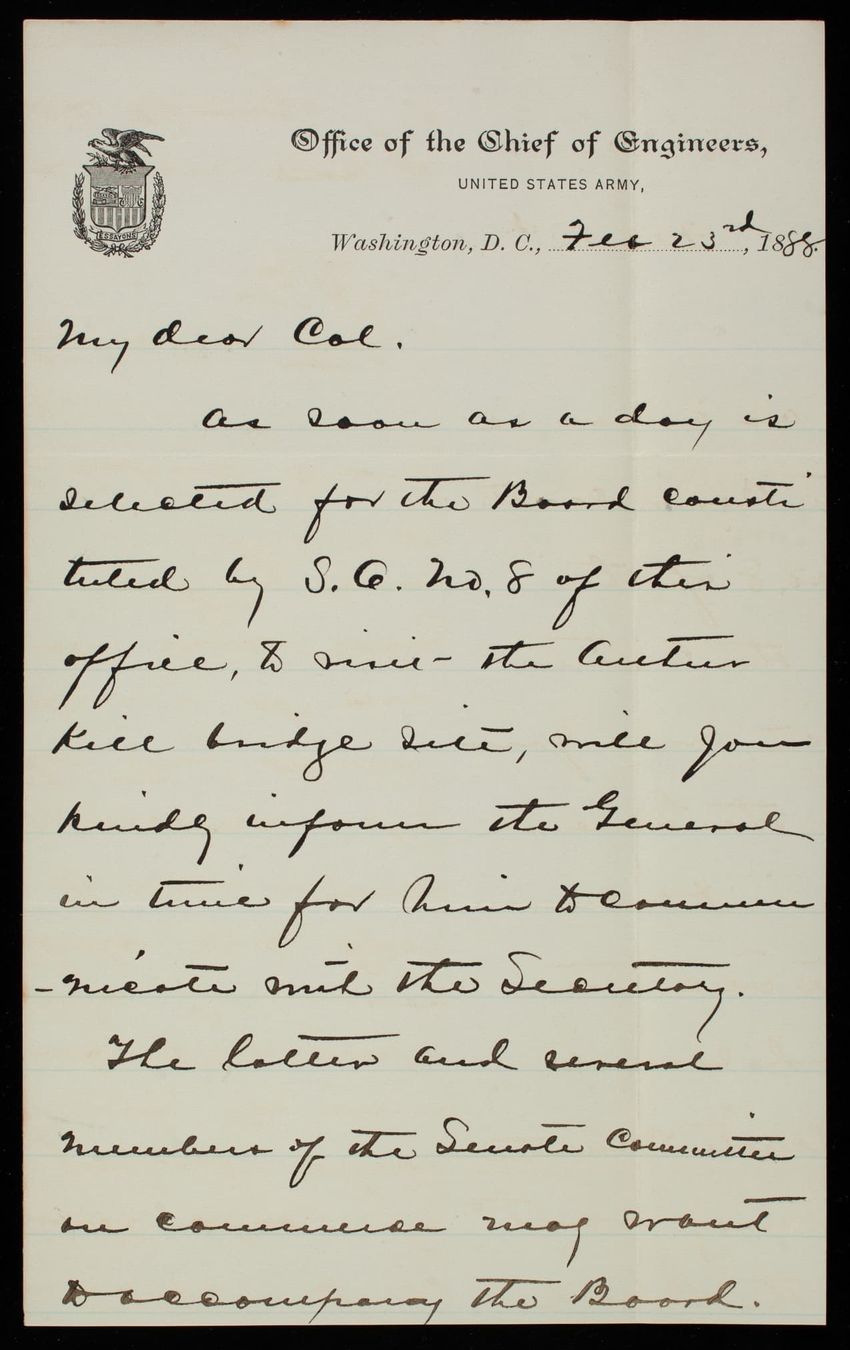 Office of the Chief of Engineers,
UNITED STATES ARMY,
Washington, D. C., Feb 23rd, 1888.
ESSAYONS
My dear Col.
As soon as a day is
selected for the Board consti
tuted by S. O. No. 8 of this
office, to visit the Arthur
Kill bridge site, will you
kindly inform the General
in time for him to commu
-nicate with the Secretary.
The latter and several
members of the Senate Committee
on commerce may want
to accompany the Board.